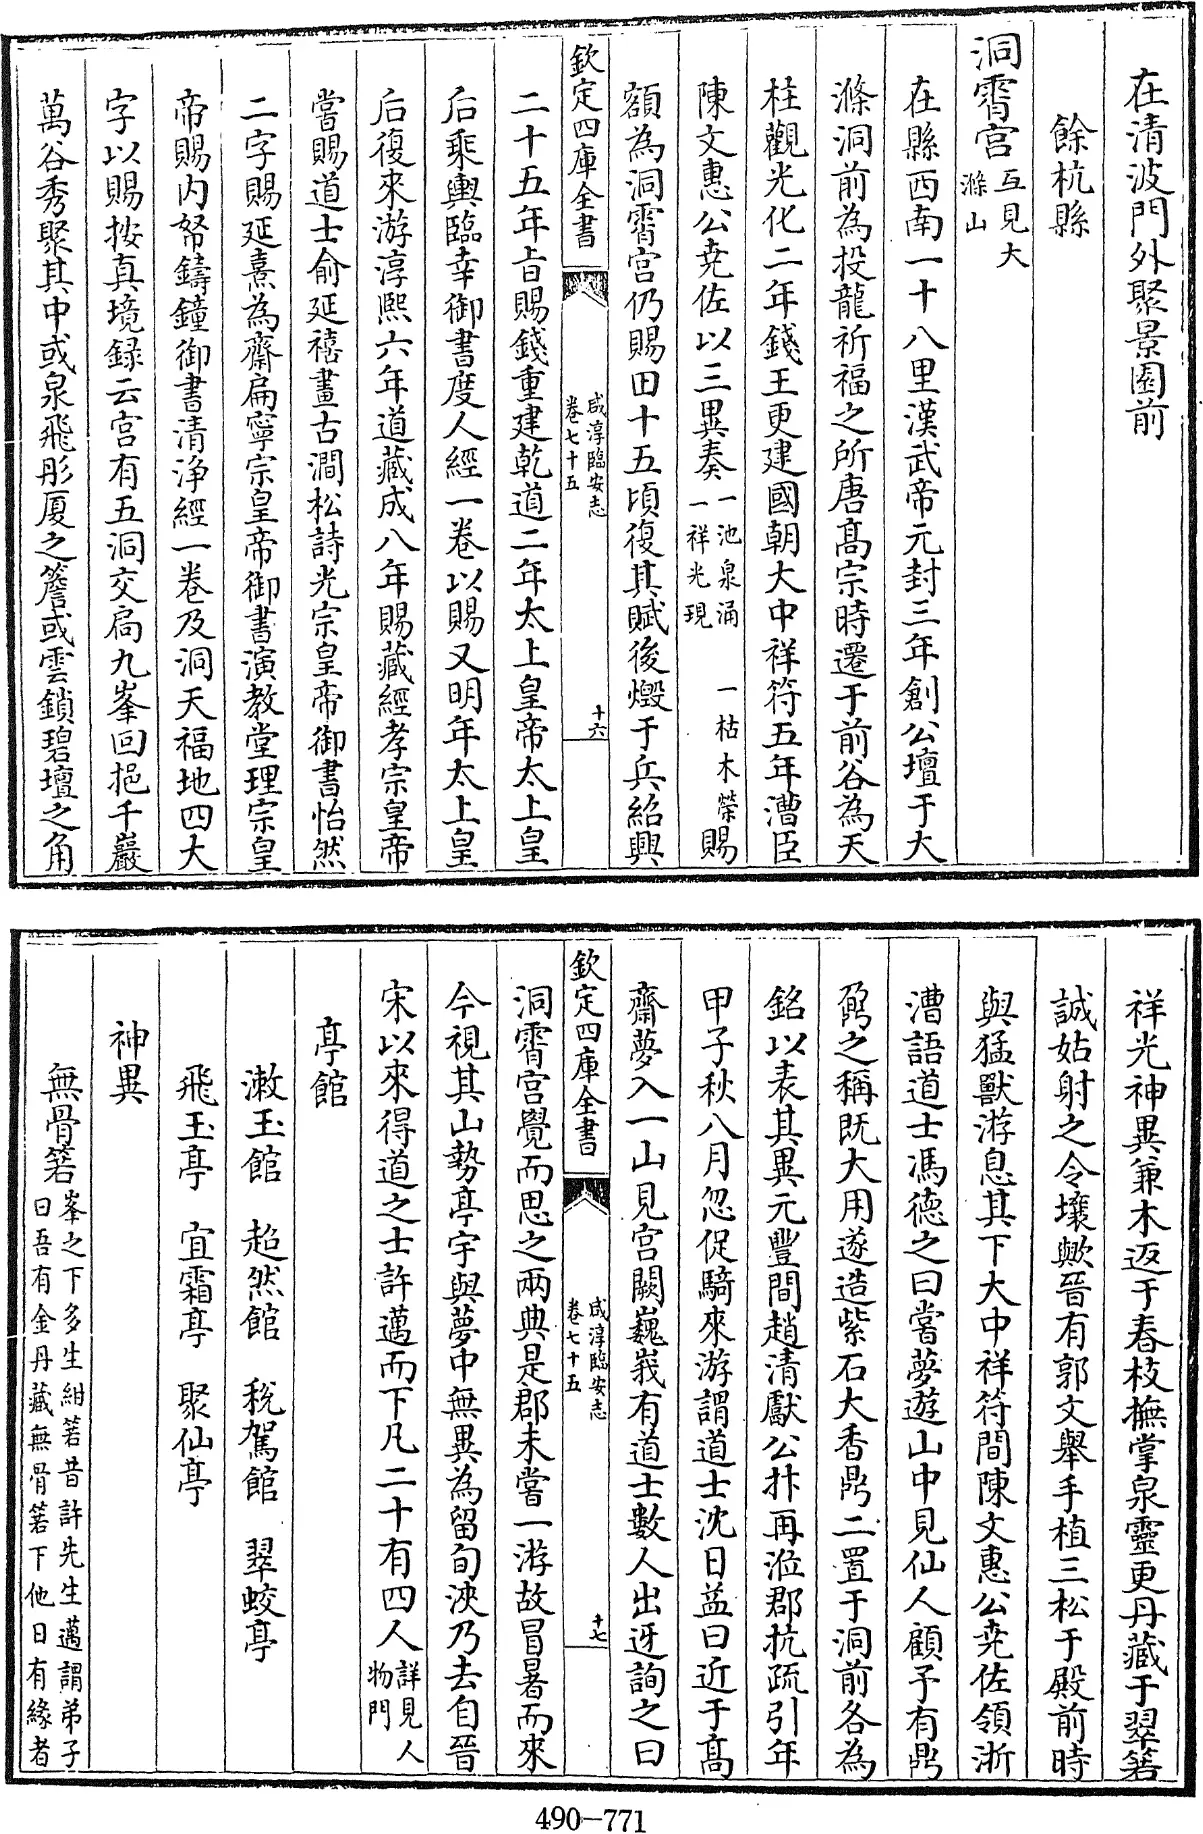 在清波門外聚景園前
餘杭縣
洞霄宫互見大
滌山
在縣西南一十八里漢武帝元封三年創公壇于大
滌洞前為投龍祈福之所唐髙宗時遷于前谷為天
柱觀光化二年錢王更建國朝大中祥符五年漕臣
陳文惠公堯佐以三異奏一池泉涌 一枯木榮
一祥光現
賜
額為洞霄宫仍賜田十五頃復其賦後燬于兵紹興
欽定四庫全書
咸淳臨安志
卷七十五
十六
二十五年㫖賜錢重建乾道二年太上皇帝太上皇
后乘輿臨幸御書度人經一卷以賜又明年太上皇
后復來游淳熙六年道藏成八年賜藏經孝宗皇帝
嘗賜道士俞延禧畫古澗松詩光宗皇帝御書怡然
二字賜延熹為齋扁寧宗皇帝御書演教堂理宗皇
帝賜内帑鑄鐘御書清浄經一卷及洞天福地四大
字以賜按真境録云宫有五洞交扃九峯回挹千巖
萬谷秀聚其中或泉飛彤厦之簷或雲鎖碧壇之角
祥光神異兼木返于春枝撫掌泉靈更丹藏于翠箬
誠姑射之令壤歟晉有郭文舉手植三松于殿前時
與猛獸游息其下大中祥符間陳文惠公堯佐領浙
漕語道士馮德之曰嘗夢遊山中見仙人顧予有鼎
鼐之稱既大用遂造紫石大香鼎二置于洞前各為
銘以表其異元豐間趙清獻公抃再涖郡抗疏引年
甲子秋八月忽促騎來游謂道士沈日益曰近于髙
齋夢入一山見宫闕巍峩有道士數人出迓詢之曰
欽定四庫全書
咸淳臨安志
卷七十五
十七
洞霄宫覺而思之兩典是郡未嘗一游故冒暑而來
今視其山勢亭宇與夢中無異為留旬浹乃去自晉
宋以來得道之士許邁而下凡二十有四人詳見人
物門
亭館
漱玉館 超然館 稅駕館 翠蛟亭
飛玉亭 宜霜亭 聚仙亭
神異
無骨箬峯之下多生紺箬昔許先生邁謂弟子
曰吾有金丹藏無骨箬下他日有緣者
490-771